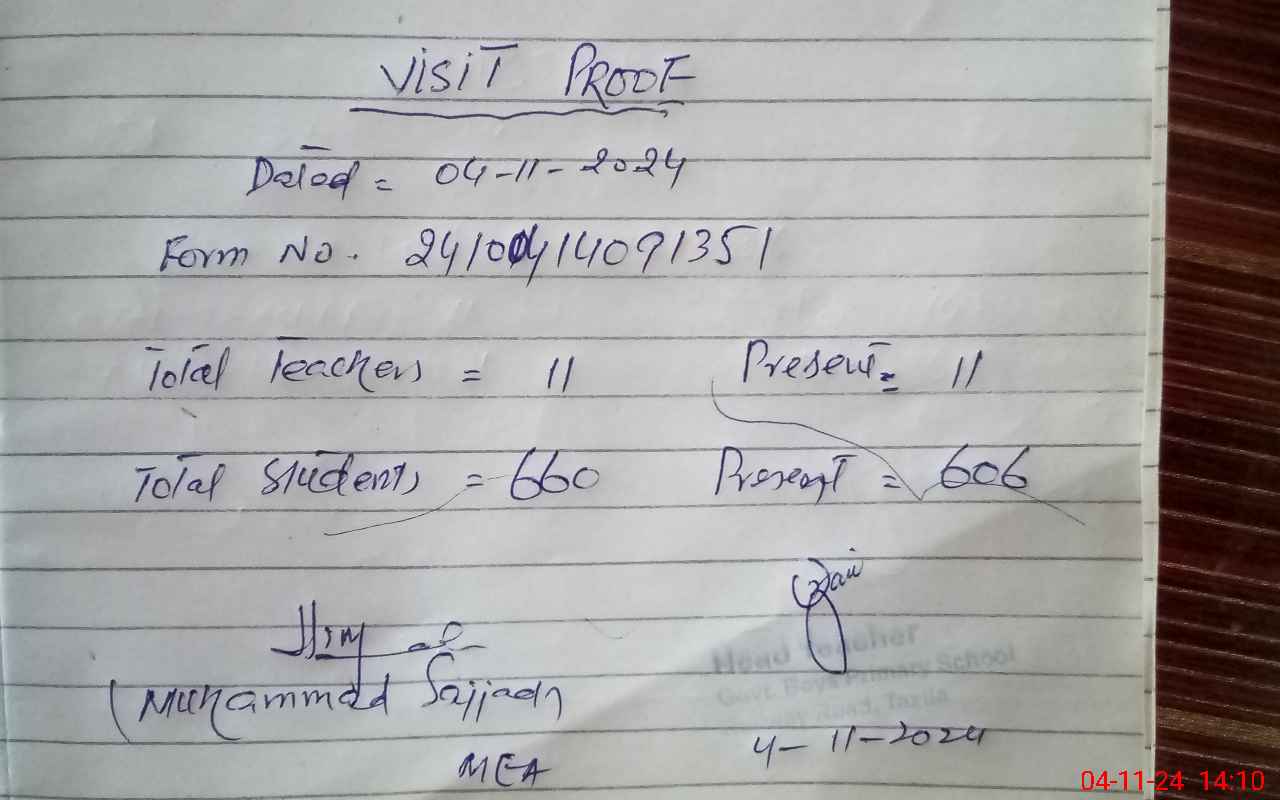 VISIT PROOF
Dated = 04-11-2024
Form No. 24100414091351
Total Teachers = 11 Present = 11
Total Students = 660 Present = 606
Head Teacher
Govt. Boys Primary School
Road, Taxila
(Muhammad Sajjad)
MEA
4-11-2024
04-11-24 14:10